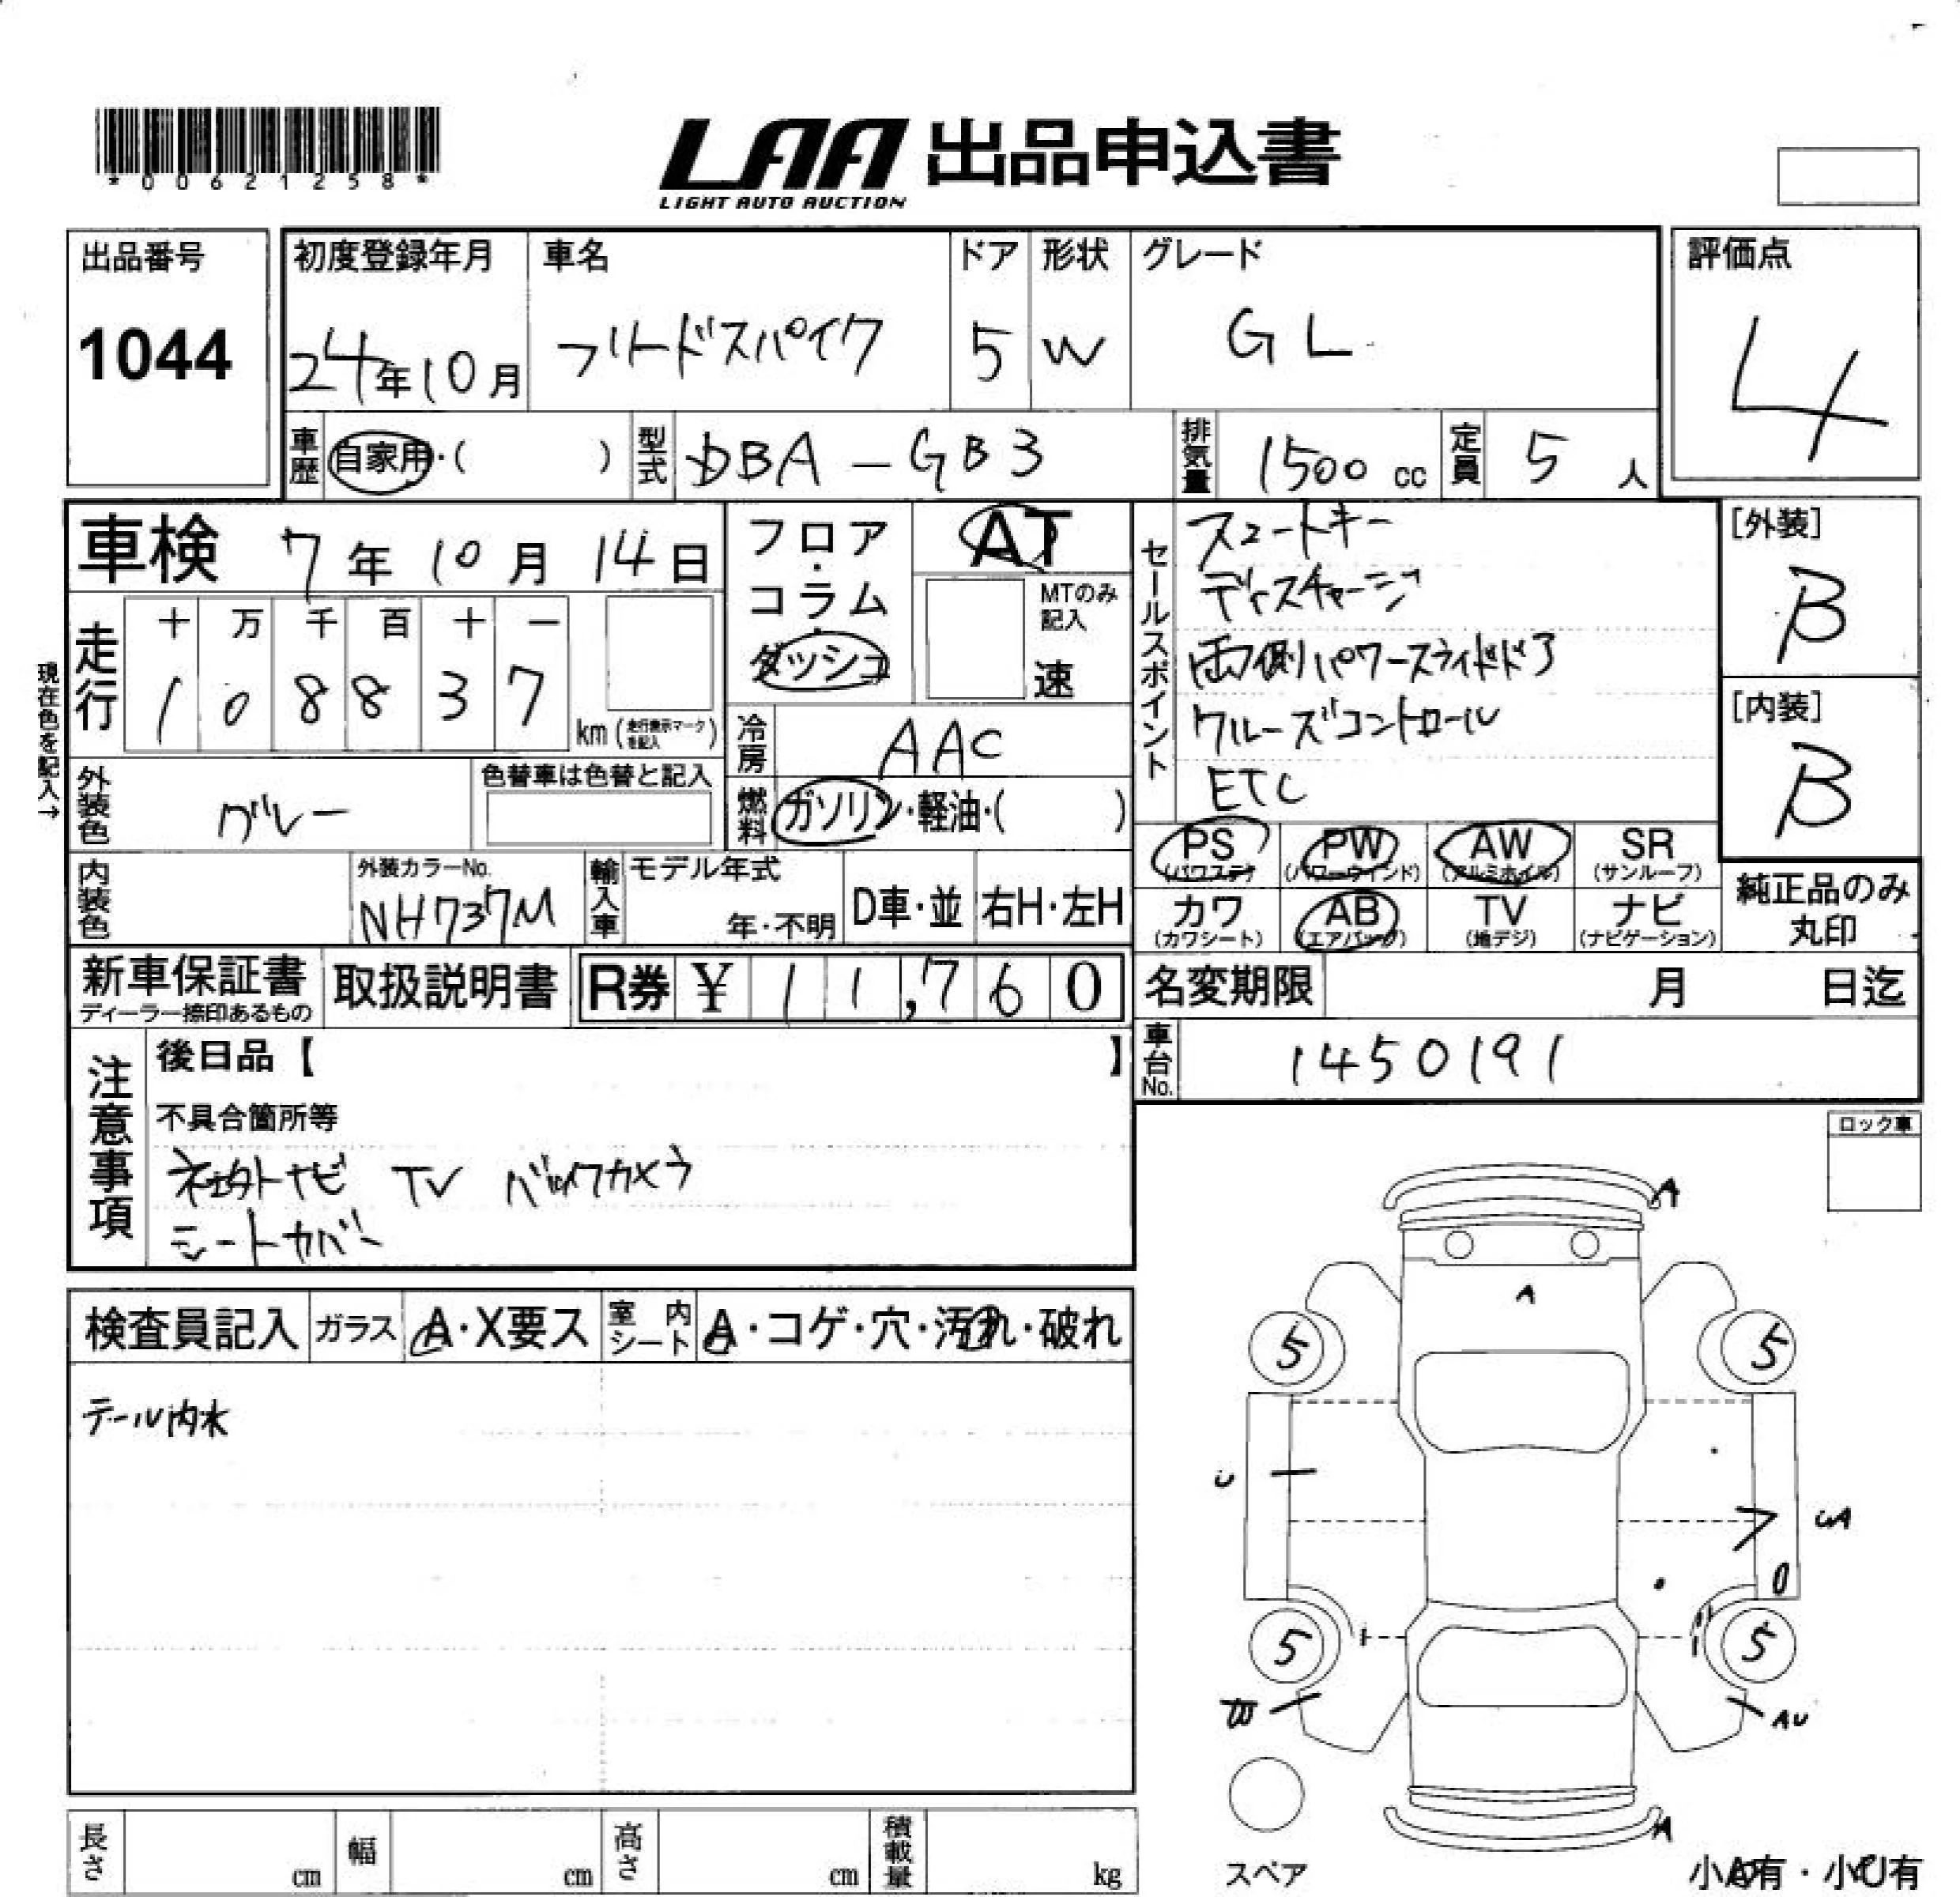 *00621258*
LAA 出品申込書
LIGHT AUTO AUCTION
出品番号
1044
初度登録年月
24年10月
車名
フリードスパイク
ドア
5
形状
W
グレード
GL
評価点
4
車歴
自家用・( )
型式
DBA-GB3
排気量
1500 cc
定員
5 人
車検 7年 10月 14日
フロア・コラム・ダッシュ
AT
MTのみ記入
速
セールスポイント
スマートキー
ディスチャージ
両側パワースライドドア
クルーズコントロール
ETC
[外装]
B
[内装]
B
現在色を記入→
走行
十 万 千 百 十 一
1 0 8 8 3 7
km (走行表示マークを記入)
冷房
AAC
外装色
グレー
色替車は色替と記入
燃料
ガソリン・軽油・( )
PS (パワステ)
PW (パワーウインド)
AW (アルミホイル)
SR (サンルーフ)
カワ (カワシート)
AB (エアバッグ)
TV (地デジ)
ナビ (ナビゲーション)
純正品のみ丸印
内装色
外装カラーNo.
NH737M
輸入車
モデル年式
年・不明
D車・並
右H・左H
新車保証書
ディーラー捺印あるもの
取扱説明書
R券 ¥ 11,760
名変期限 月 日迄
車台No.
1450191
注意事項
後日品【 】
不具合箇所等
社外ナビ TV バックカメラ
シートカバー
ロック車
検査員記入
ガラス
A・X要ス
室内シート
A・コゲ・穴・汚れ・破れ
テール内水
A
A
5
5
U
UA
5
5
AU
A
スペア
小A有・小U有
長さ cm
幅 cm
高さ cm
積載量 kg